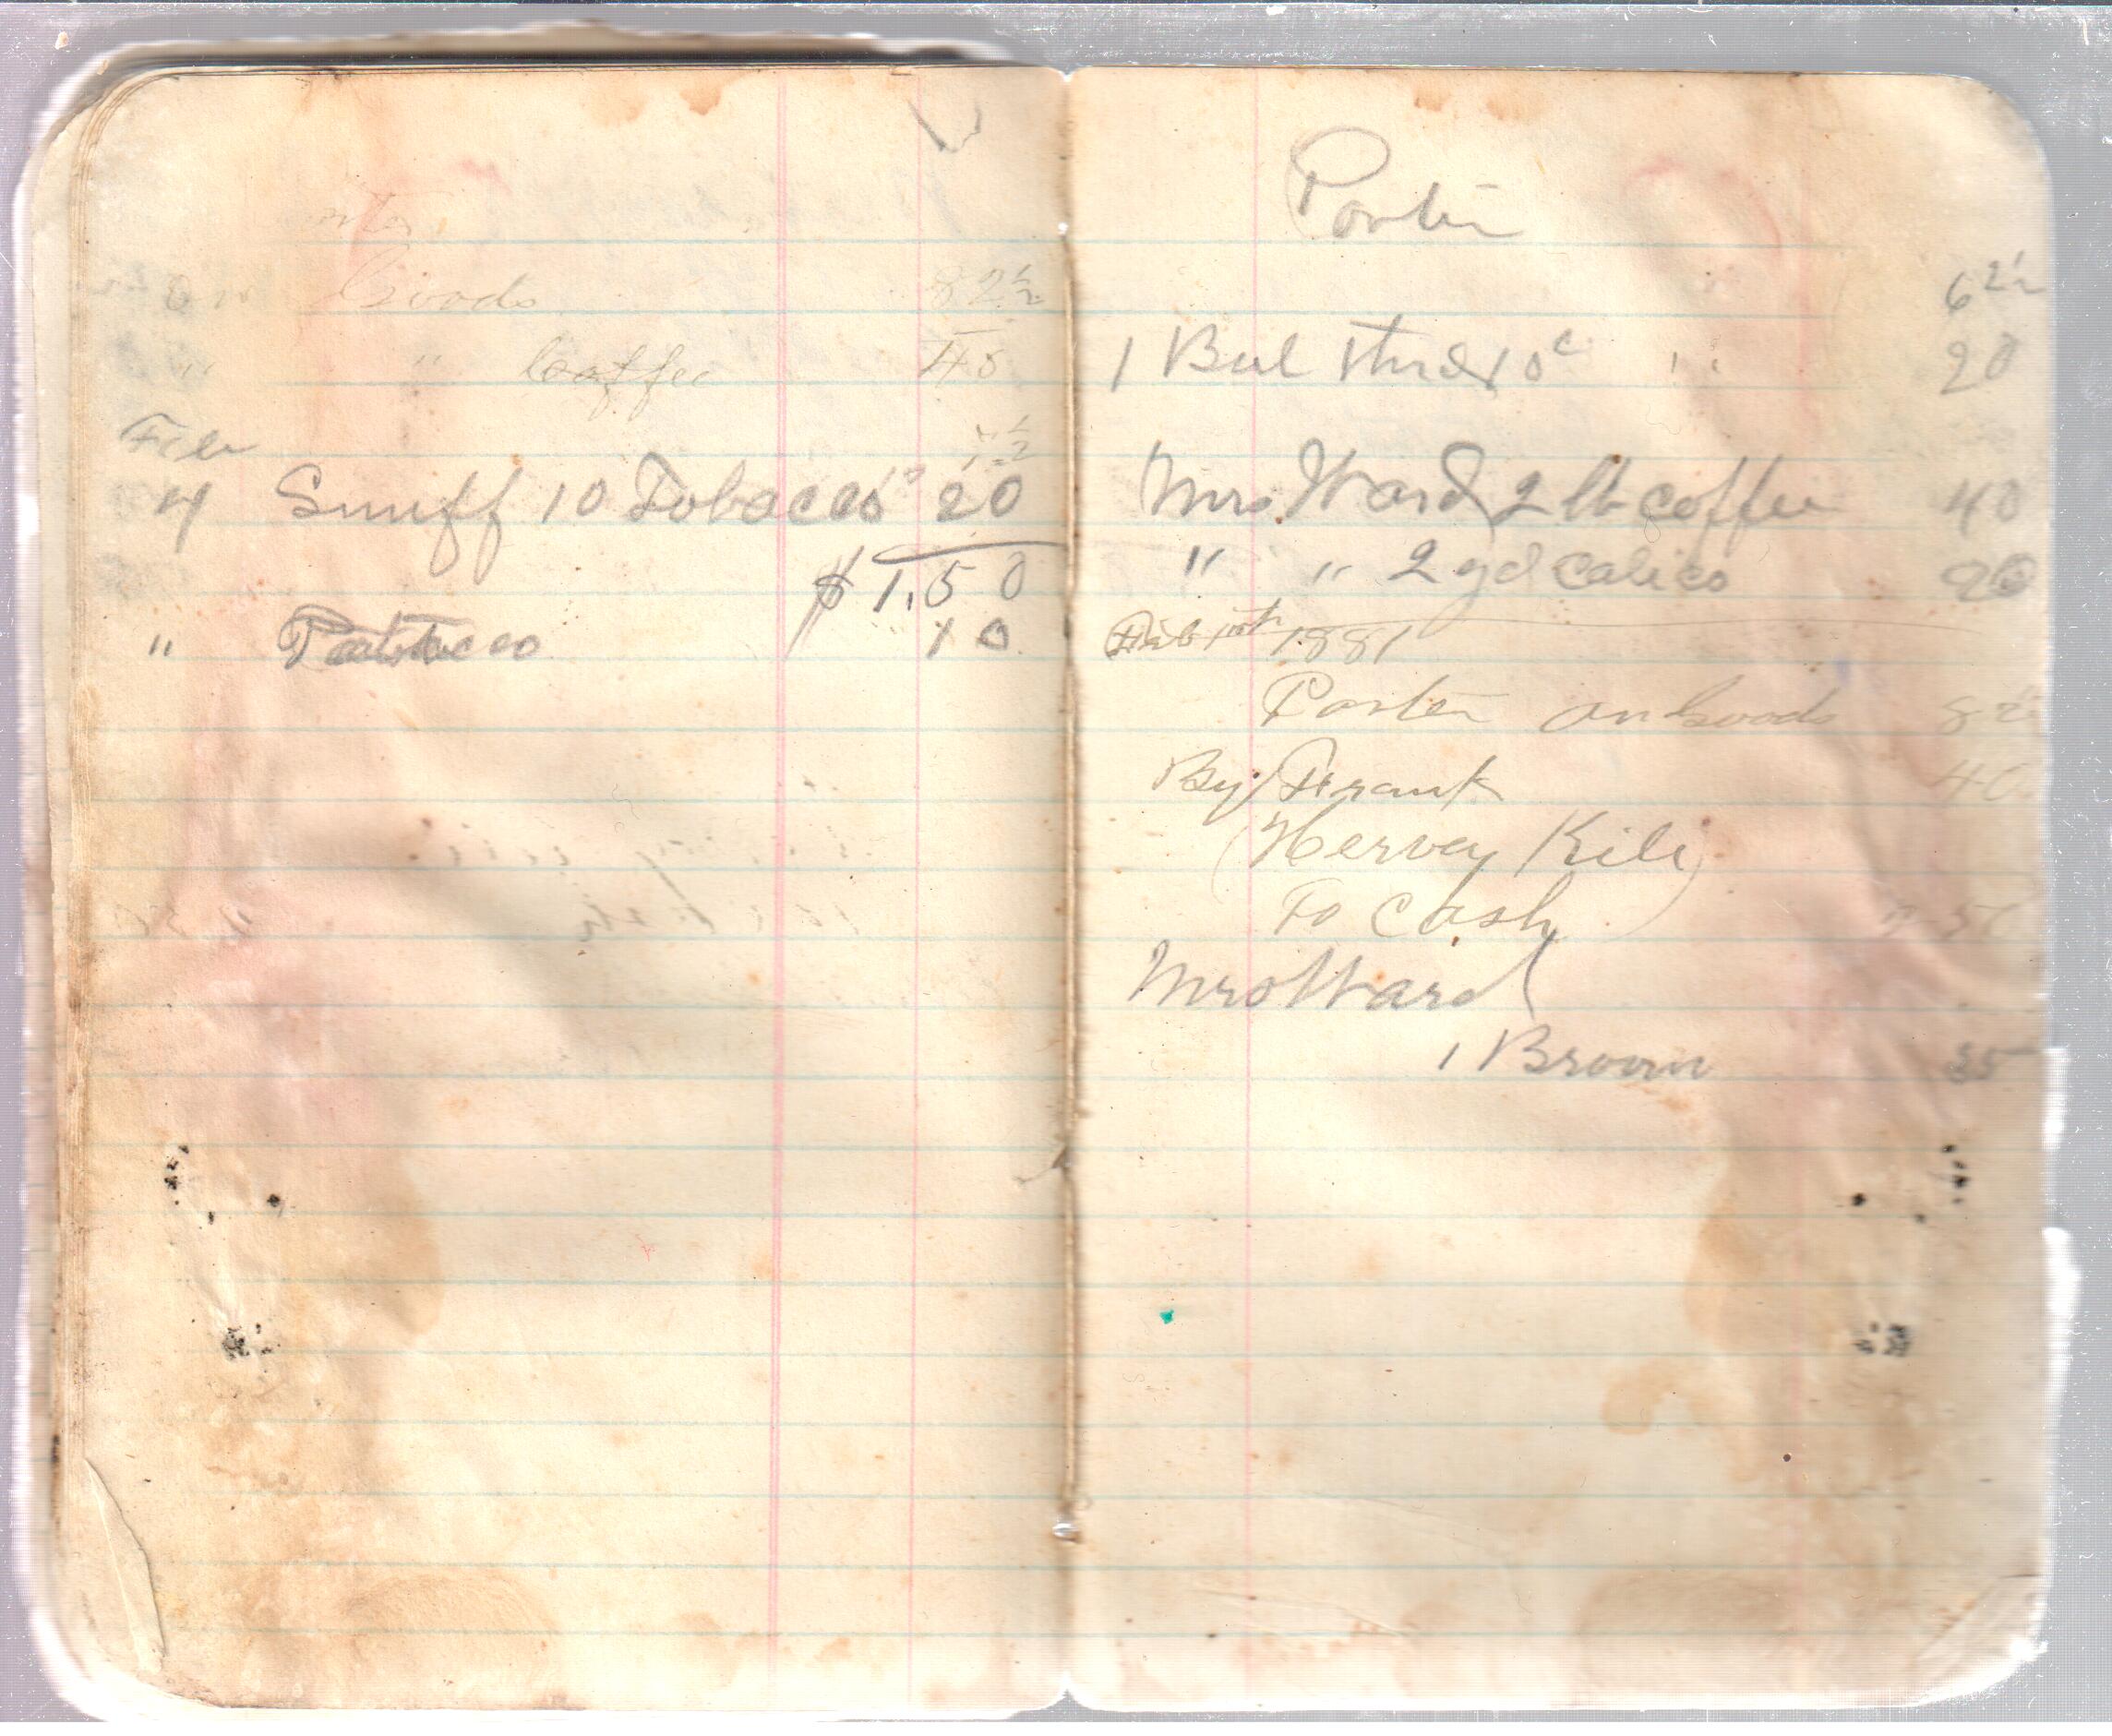 On Goods 82½
" " Coffee 40
Feb ½
4 Snuff 10 Tobacco 10 20
$1.50
" 10
Porter
62½
1 Bal thrd 10c " 20
Mrs Ward 2 lb coffee 40
" " 2 yd Calico 20
Feb 10th 1881
Porter on Goods 82½
By Frank 40
(Hervey Kile)
To Cash 50
Mrs Ward
1 Broom 35